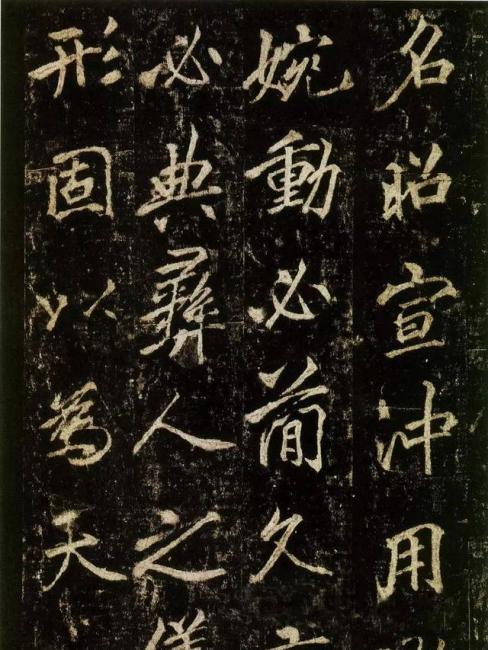 名昭宣沖用
婉動必簡久
必典彝人之
形固以為天